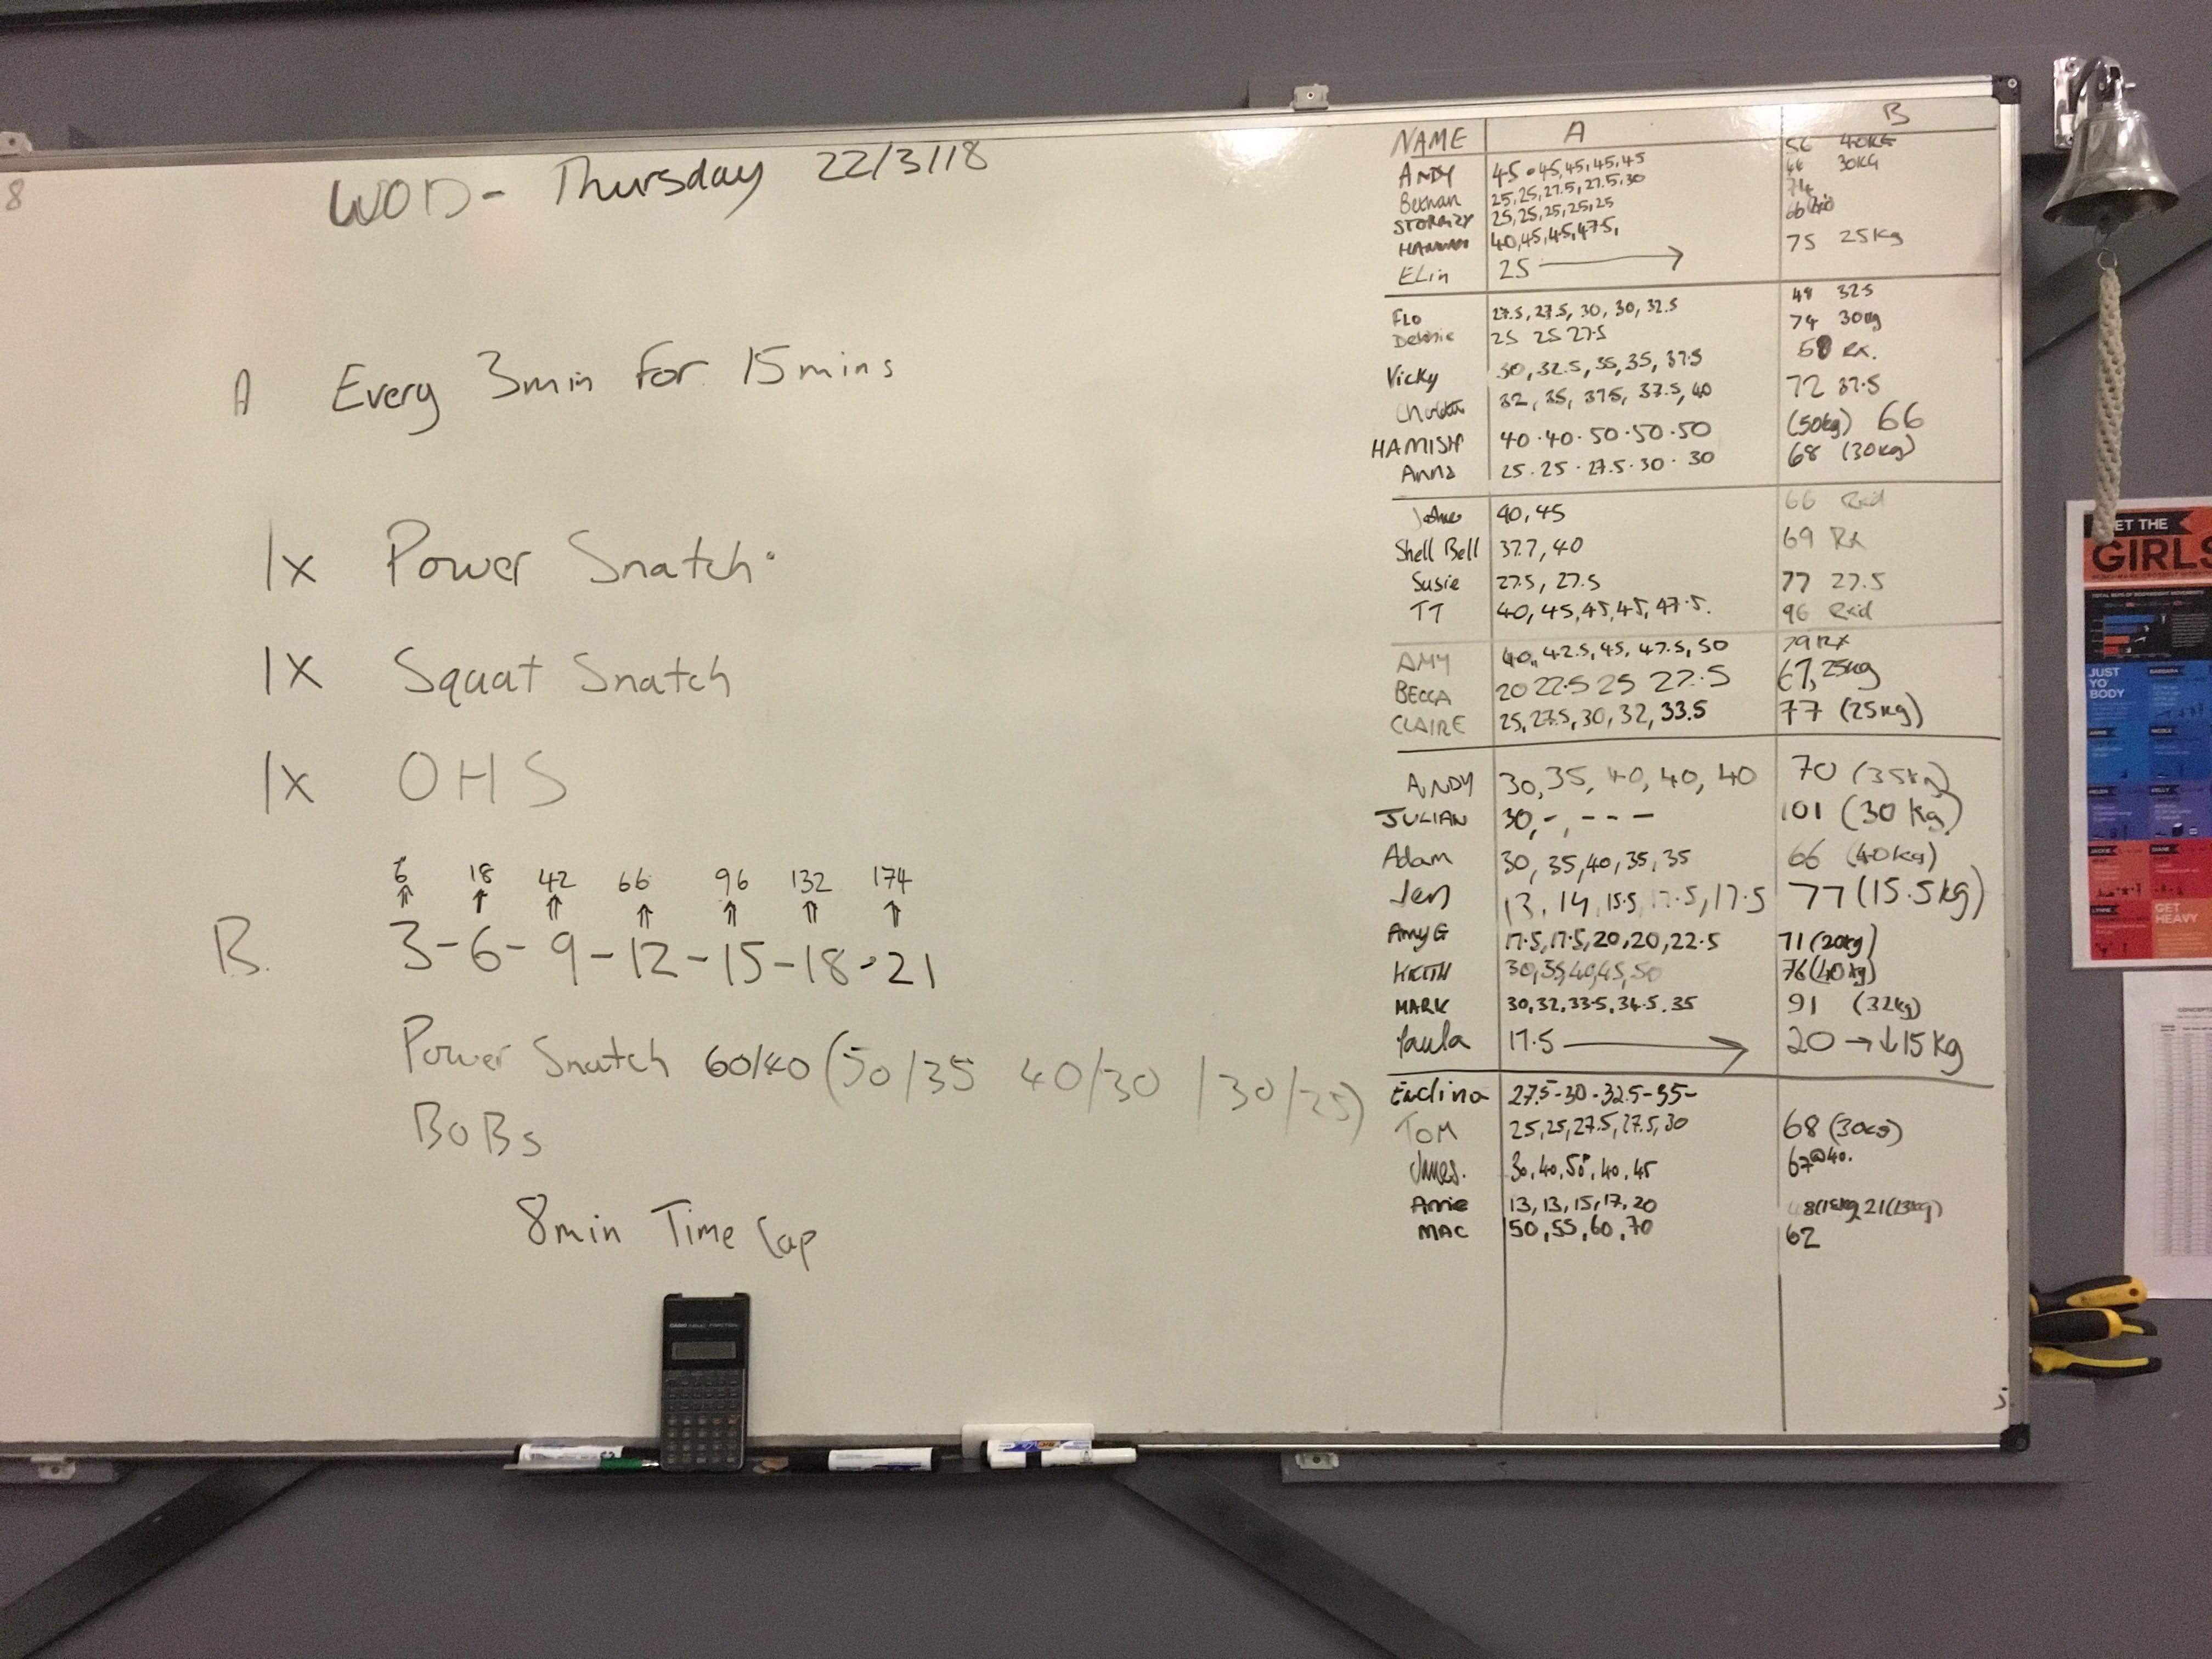 8
WOD - Thursday 22/3/18
A Every 3min for 15mins
1x Power Snatch
1x Squat Snatch
1x OHS
6 18 42 66 96 132 174
B. 3-6-9-12-15-18-21
Power Snatch 60/40 (50/35 40/30 / 30/25)
BoBs
8min Time Cap
NAME A B
ANDY 45.45,45,45,45 56 40KG
25,25,27.5,27.5,30 30KG
25,25,25,25,25 74
40,45,45,47.5, 66
ELin 25 → 75 25Kg
FLO 27.5, 27.5, 30, 30, 32.5 48 32.5
25 25 27.5 74 30kg
Vicky 30, 32.5, 35, 35, 37.5 Rx.
32, 35, 37.5, 37.5, 40 72 37.5
HAMISH 40.40.50.50.50 (50kg) 66
Anna 25.25.27.5.30.30 68 (30kg)
40, 45 66 Rxd
Shell Bell 37.7, 40 69 Rx
Susie 27.5, 27.5 77 27.5
TT 40, 45, 45, 45, 47.5. 96 Rxd
AMY 40, 42.5, 45, 47.5, 50 79 Rx
BECCA 20 22.5 25 27.5 67, 25kg
CLAIRE 25, 27.5, 30, 32, 33.5 77 (25kg)
ANDY 30, 35, 40, 40, 40 70 (35kg)
JULIAN 30, -, - - - 101 (30 kg)
Adam 30, 35, 40, 35, 35 66 (40kg)
Jen 13, 14, 15.5, 17.5, 17.5 77 (15.5kg)
Amy G 17.5, 17.5, 20, 20, 22.5 71 (20kg)
KEITH 30, 35, 40, 45, 50 76 (40kg)
MARK 30, 32, 33.5, 34.5, 35 91 (32kg)
Paula 17.5 → 20 → ↓ 15 kg
27.5-30-32.5-35-
TOM 25, 25, 27.5, 27.5, 30 68 (30kg)
James. 30, 40, 50, 40, 45 67@40.
13, 13, 15, 17, 20 48(15kg) 21(13kg)
MAC 50, 55, 60, 70 62
GET THE
GIRLS
JUST
YO'
BODY
GET
HEAVY